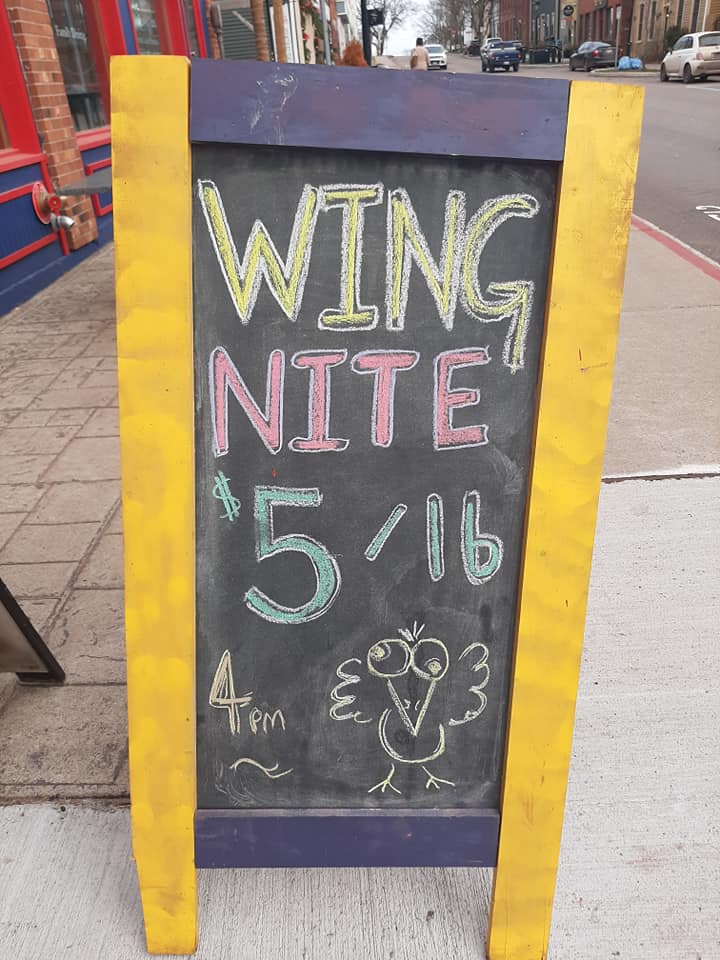 WING
NITE
$5/lb
4pm